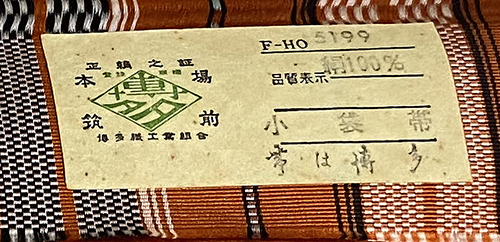 正絹之証
本場
登録 商標
博多
筑前
博多織工業組合
F-HO 5199
品質表示 絹100%
小袋帯
帯は博多